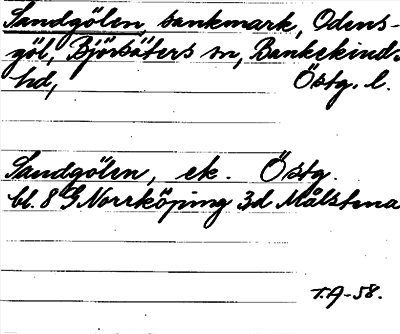 Sandgölen, sankmark, Odens-
göl, Björsäters sn, Bankekinds
hd, Östg. l.
Sandgölen, ek. Östg.
bl. 8 G Norrköping 3d Målstena
T.A-58.